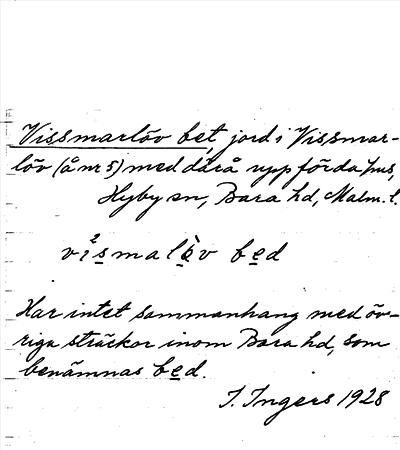 Vissmarlöv bet, jord i Vissmar-
löv (å nr 5) med därå uppförda hus,
Hyby sn, Bara hd, Malm. l.
vi²smalò̱v be̱d
Har intet sammanhang med öv-
riga sträckor inom Bara hd, som
benämnas be̱d.
I. Ingers 1928